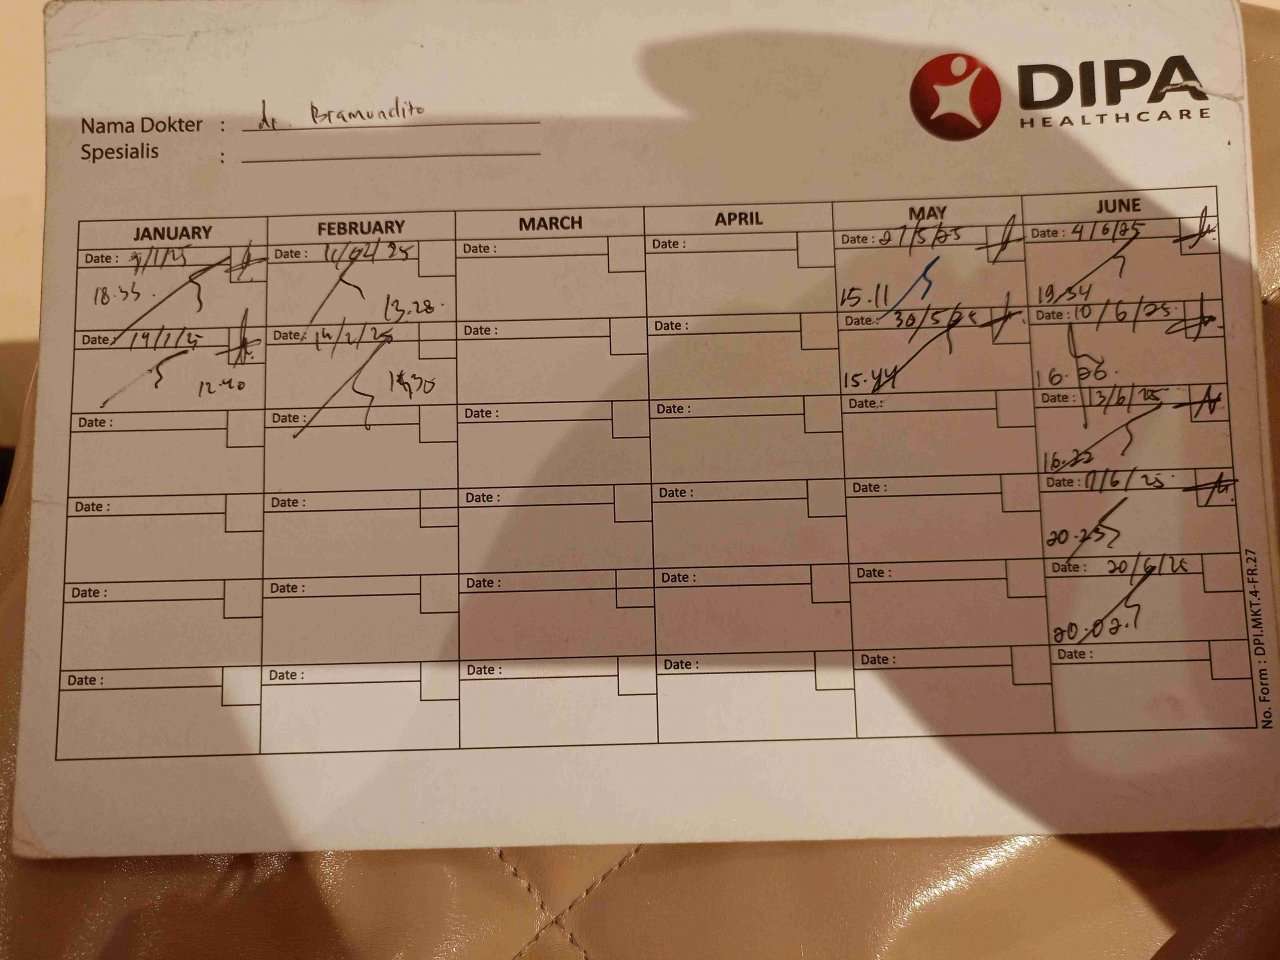 DIPA
HEALTHCARE
Nama Dokter : dr. Bramundito
Spesialis :
JANUARY FEBRUARY MARCH APRIL MAY JUNE
Date : 9/1/25 Date : 11/02/25 Date : Date : Date : 27/5/25 Date : 4/6/25
18.33 13.28 15.11 19.34
Date : 14/1/25 Date : 14/2/25 Date : Date : Date : 30/5/25 Date : 10/6/25
12.40 15.44 16.26
Date : Date : Date : Date : Date : Date : 13/6/25
16.22
Date : Date : Date : Date : Date : Date : 17/6/25
20.23
Date : Date : Date : Date : Date : Date : 20/6/25
20.02
Date : Date : Date : Date : Date : Date :
No. Form : DPI.MKT.4-FR.27